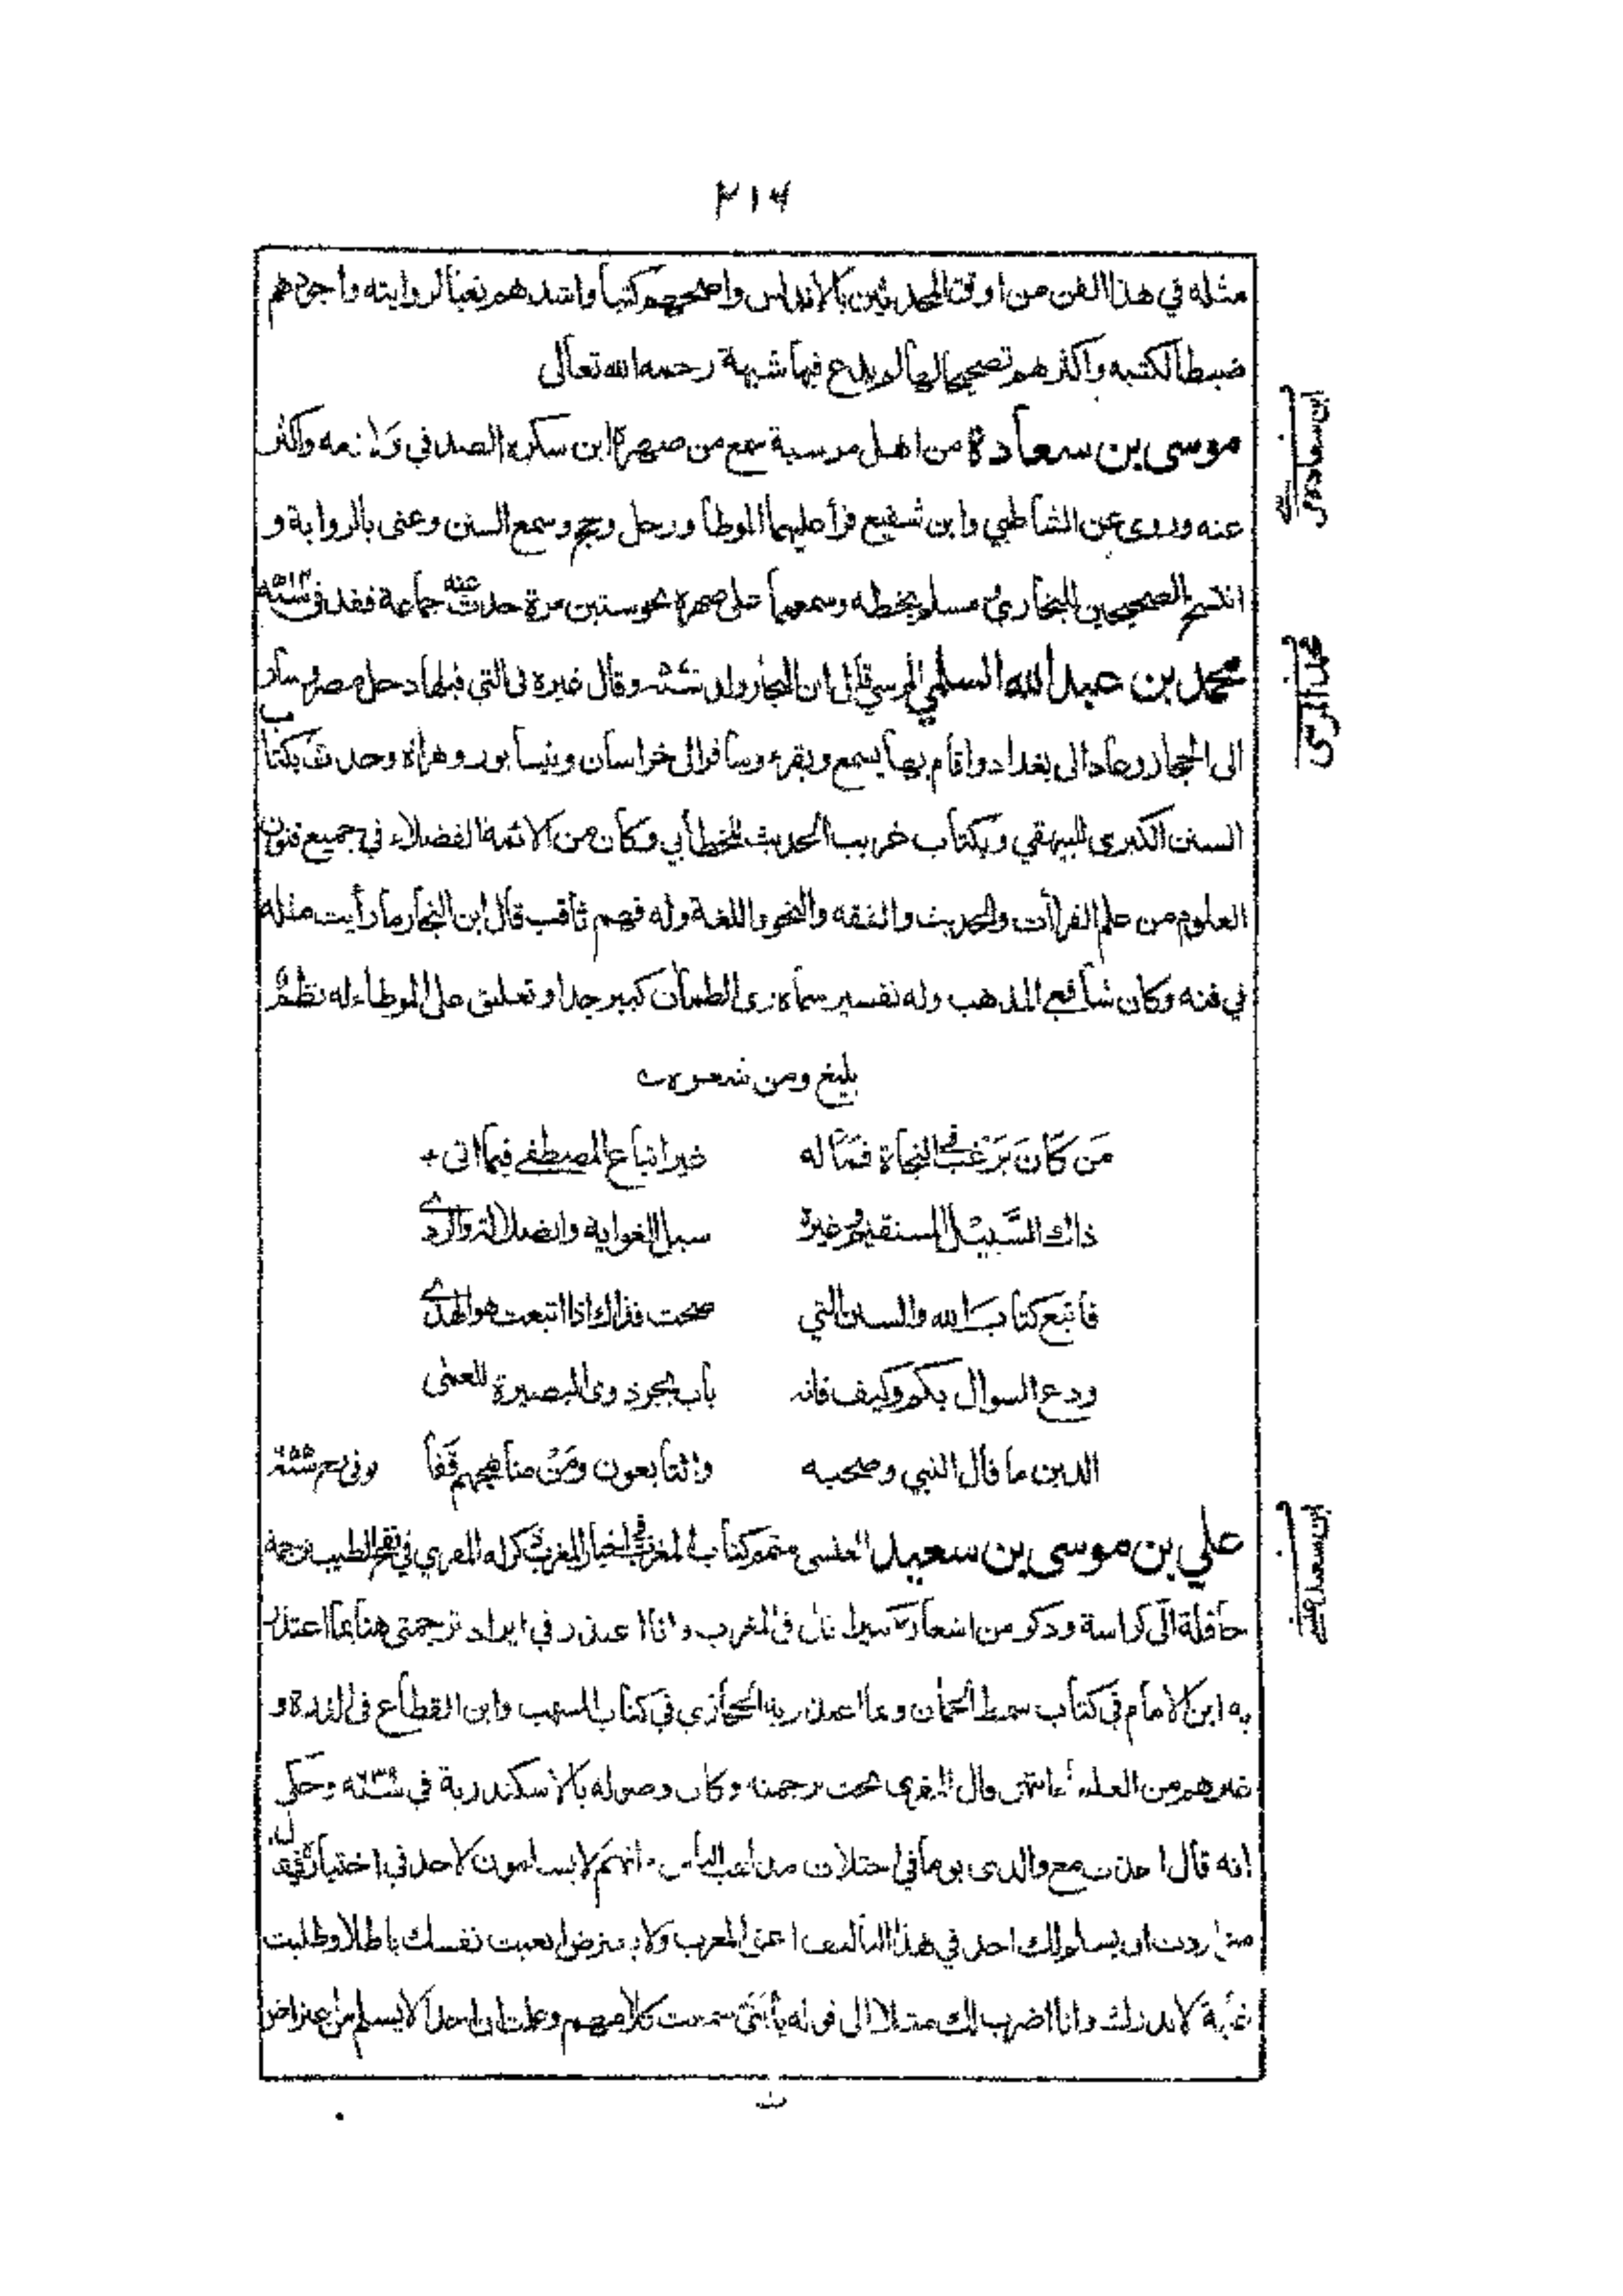 ٢١٧
مثله في هذا الفن من اوثق المحدثين بالاندلس واصحهم كتبا واشدهم تعبا لروايته واجودهم
ضبطا لكتبه واكثرهم تصحيحا لها لا يدع فيها شبهة رحمه الله تعالى
موسى بن سعادة من اهل مرسية سمع من صهره ابن سكره الصدفي ولازمه واكثر
عنه وروى عن الشاطبي وابن شفيع قرأ عليهما الموطأ ورحل وحج وسمع السنن وعنى بالرواية و
انتسخ الصحيحين البخاري ومسلم بخطه وسمعهما على صهره نحو ستين مرة حدث عنه جماعة فقد في
محمد بن عبد الله السلمي المرسي قال ابن النجار ولد وقال غيره في التي قبلها دخل مصر وسار
الى الحجاز وعاد الى بغداد واقام بها يسمع ويقرء وسافر الى خراسان ونيسابور وهراة وحدث بكتاب
السنن الكبرى للبيهقي وبكتاب غريب الحديث للخطابي وكان من الائمة الفضلاء في جميع فنون
العلوم من علم القراآت والحديث والفقه والنحو واللغة وله فهم ثاقب قال ابن النجار ما رأيت مثله
في فنه وكان شافعي المذهب وله تفسير سماه ري الظمآن كبير جدا وتعليق على الموطاء له نظم
بليغ ومن شعره
مَن كَان يَرْغب في النجاة فمَا له خير اتباع المصطفى فيما اتى
ذاك السَّبيْل المستقيم وغيره سبل الغواية والضلالة والردى
فاتبع كتاب الله والسنن التي صحت فذاك اذا اتبعت هو الهدى
ودع السوال بكم وكيف فانه باب يجر ذوى البصيرة للعمى
الدين ما قال النبي وصحبه والتابعون ومَنْ مناهجهم قَفَا توفى رح
علي بن موسى بن سعيد العنسى متمم كتاب المغرب في اخبار المغرب ذكر له المقري في نفح الطيب ترجمة
حافلة الى كراسة وذكر من اشعاره كثيرا قال في المغرب وانا اعتذر في ايراد ترجمتي هنا بما اعتذر
به ابن الامام في كتاب سمط الجمان وبما اعتذر به الحجازي في كتاب المسهب وابن القطاع في الدرة و
غيرهم من العلماء انتهى وقال المقري تحت ترجمته وكان وصوله بالاسكندرية في ٦٣٩ سنة وحكى
انه قال اخذت مع والدى يوما في اختلاف مذاهب الناس وانهم لا يسلمون لاحد في اختياره فقال
متى اردت ان يسلم لك احد في هذا التأليف اعنى المغرب ولا يعترض اتعبت نفسك باطلا وطلبت
غاية لا تدرك وانا اضرب لك مثلا الى قوله يا بنى سمعت كلامهم وعلمت ان احدا لا يسلم من اعتراض
محمد المرسى